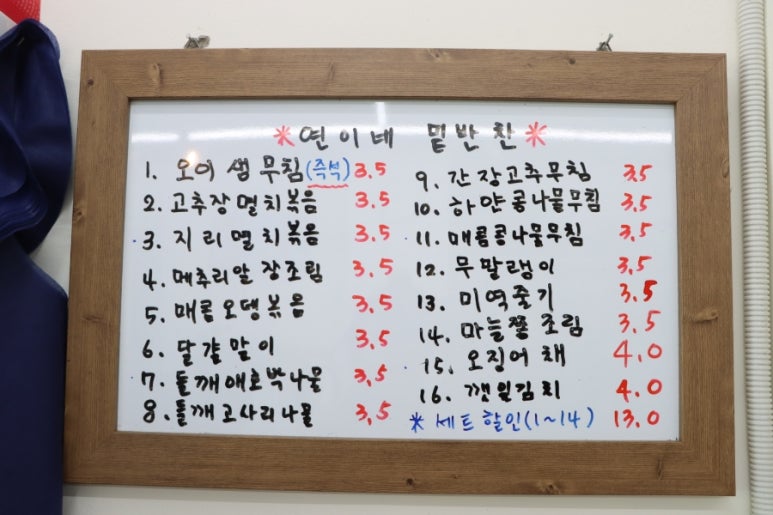 *연이네 밑반찬*
1. 오이 생 무침(즉석) 3.5
2. 고추장멸치볶음 3.5
3. 지리멸치볶음 3.5
4. 메추리알 장조림 3.5
5. 매콤오뎅볶음 3.5
6. 달걀말이 3.5
7. 들깨애호박나물 3.5
8. 들깨고사리나물 3.5
9. 간장고추무침 3.5
10. 하얀콩나물무침 3.5
11. 매콤콩나물무침 3.5
12. 무말랭이 3.5
13. 미역줄기 3.5
14. 마늘쫑 조림 3.5
15. 오징어채 4.0
16. 깻잎김치 4.0
* 세트할인(1~14) 13.0